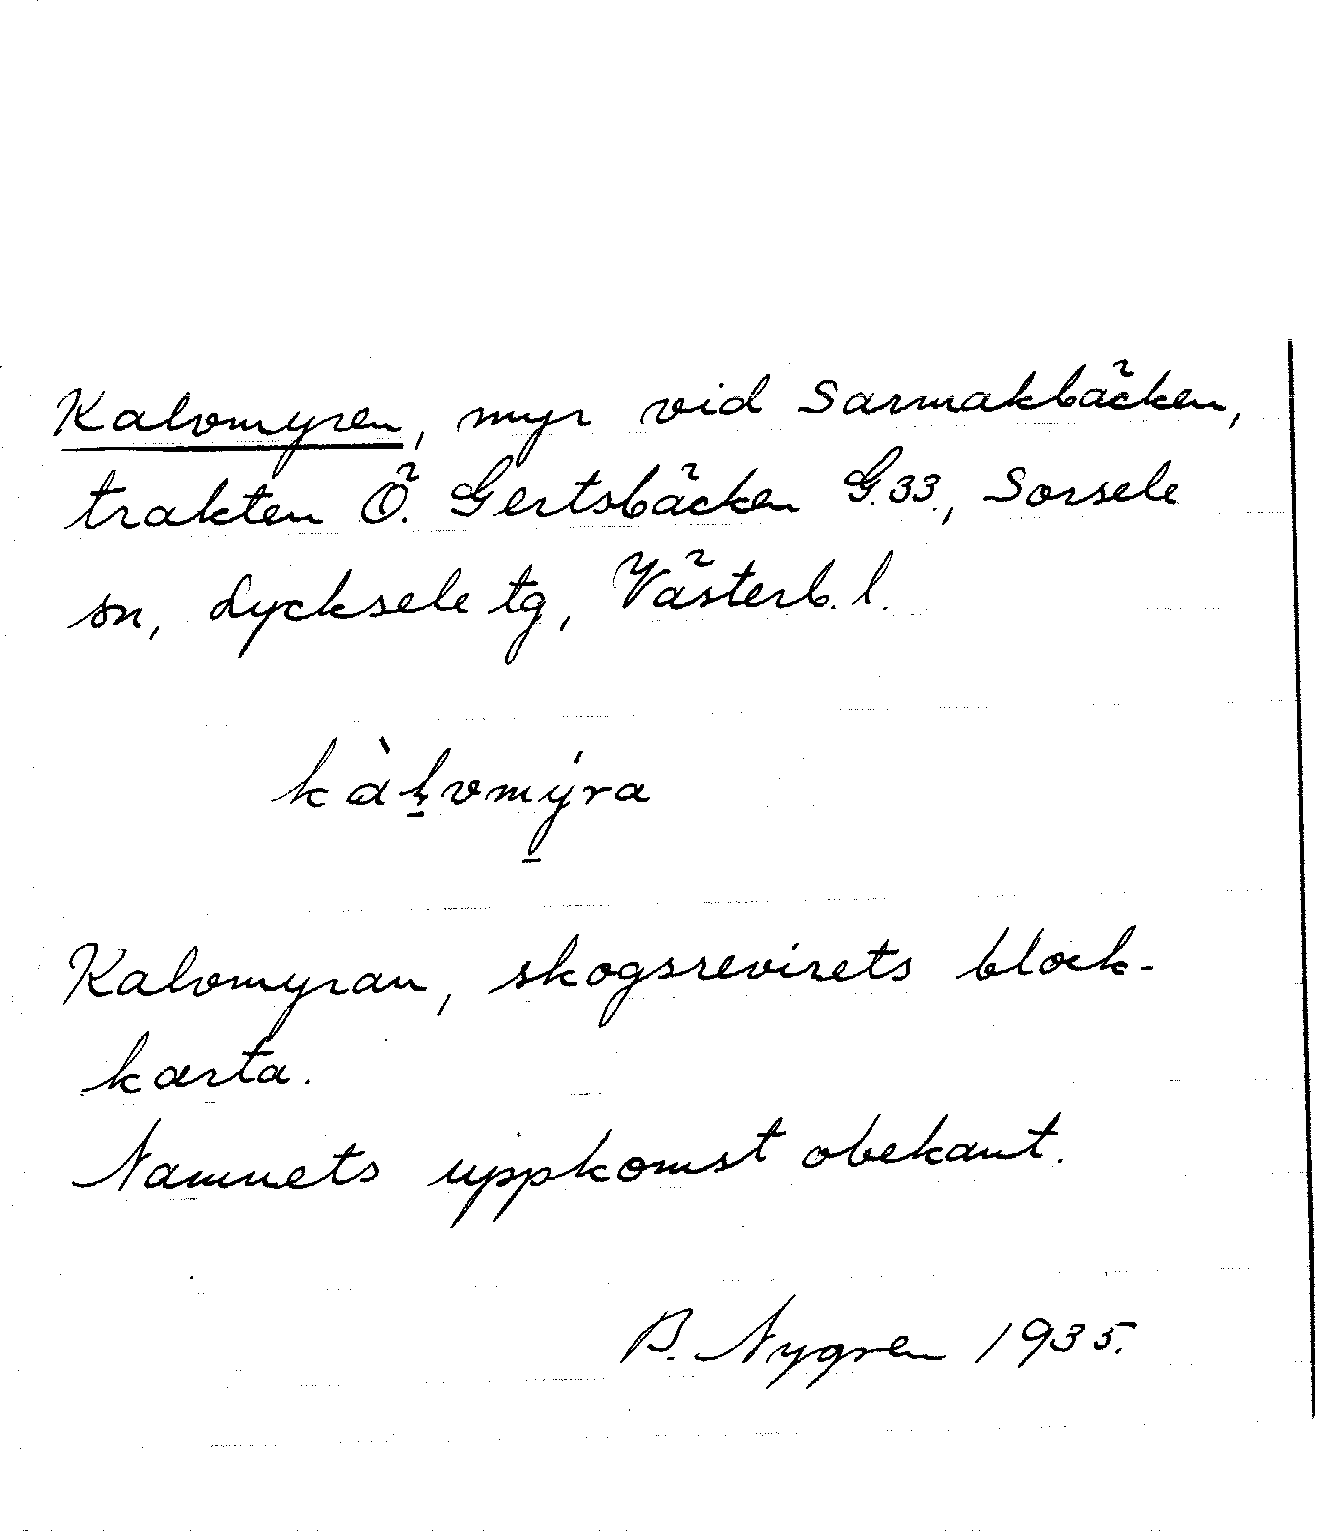 Kalvmyren, myr vid Sarmakbäcken,
trakten Ö. Gertsbäcken G.33., Sorsele
sn, Lycksele tg, Västerb. l.
kàḷvmý̱ra
Kalvmyran, skogsrevirets block-
karta.
Namnets uppkomst obekant.
B. Nygren 1935.